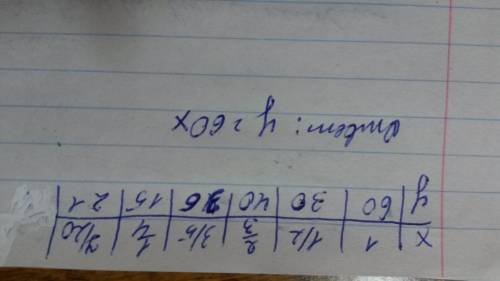 x | 1 | 1/2 | 2/3 | 3/5 | 1/4 | 7/20
y | 60 | 30 | 40 | 36 | 15 | 21
Ответ: y = 60x